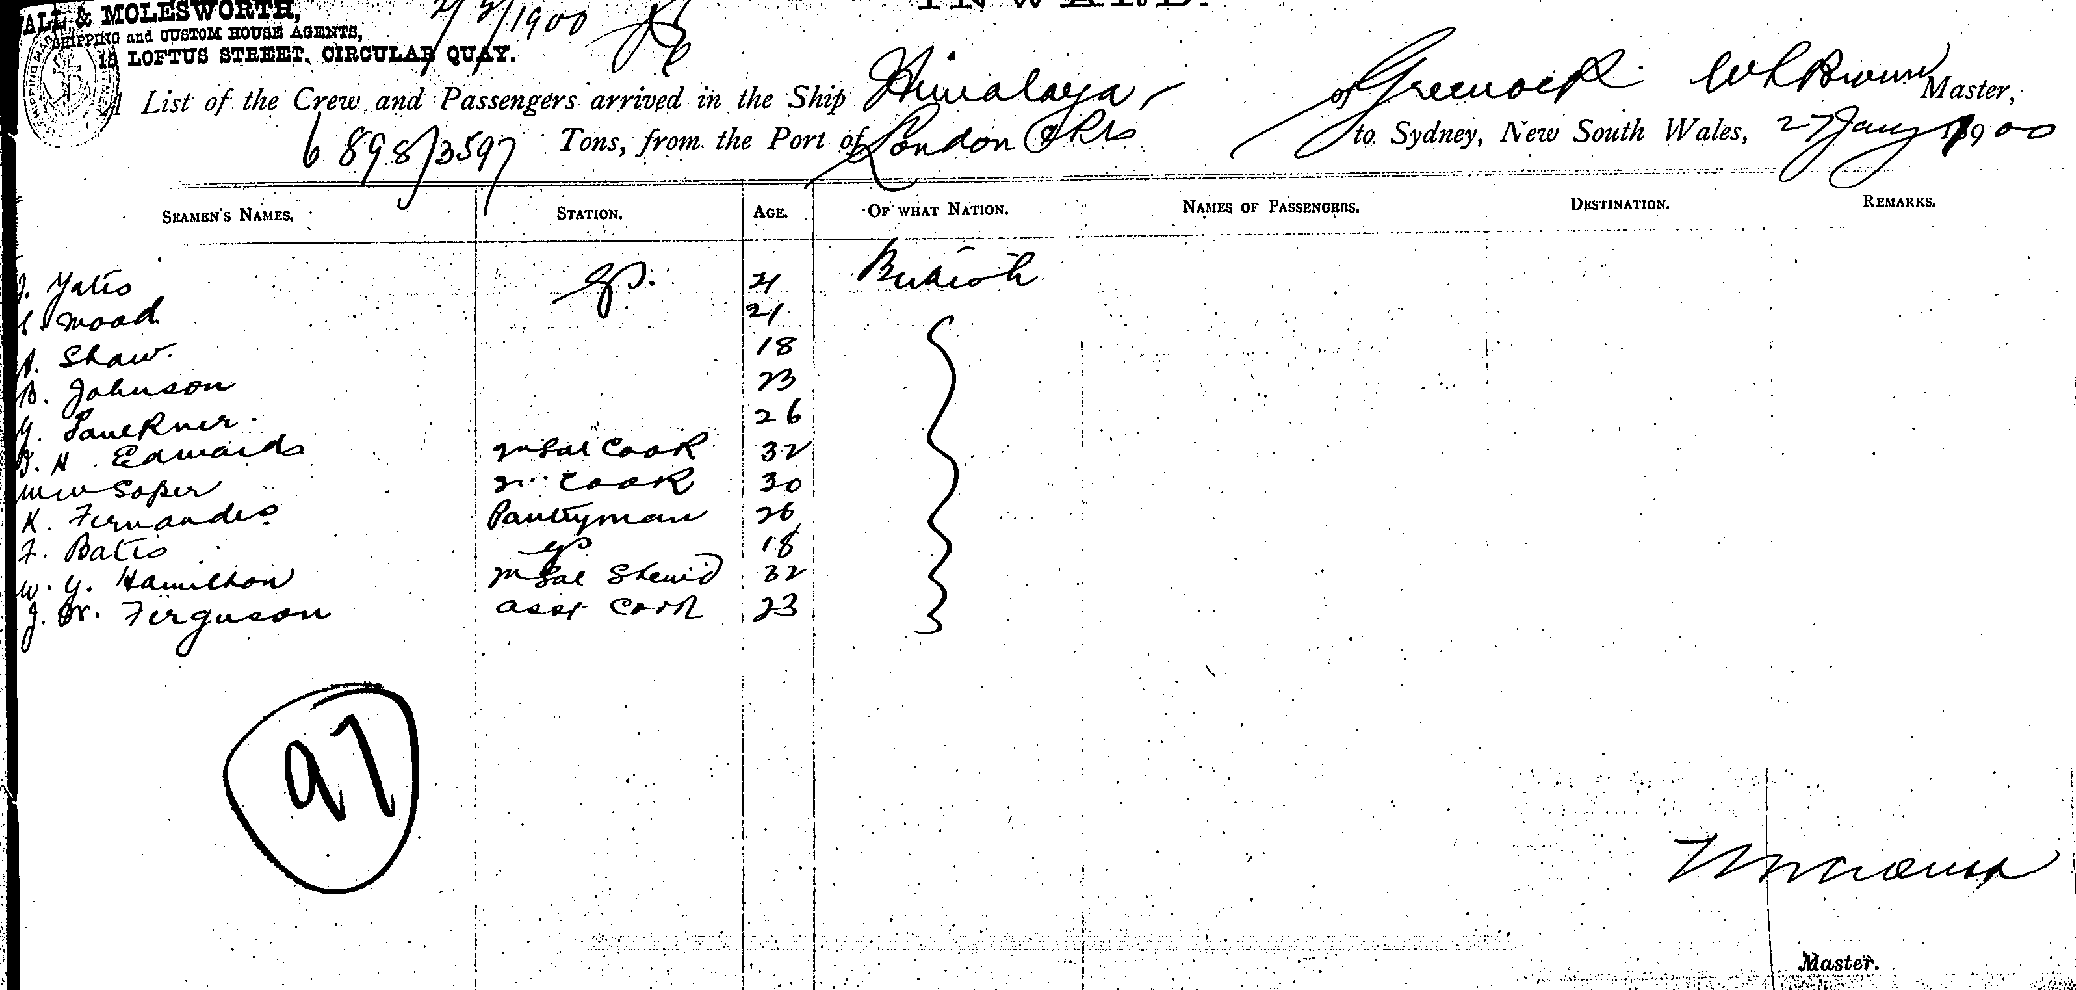 & MOLESWORTH,
SHIPPING and CUSTOM HOUSE AGENTS,
LOFTUS STREET, CIRCULAR QUAY.
/1900
INWARD.
A List of the Crew and Passengers arrived in the Ship Himalaya of Greenock W L Brown Master,
6898/3597 Tons, from the Port of London & Pts to Sydney, New South Wales, 27 Jany 1900
SEAMEN'S NAMES. STATION. AGE. OF WHAT NATION. NAMES OF PASSENGERS. DESTINATION. REMARKS.
Yates 21 British
Mood 21
A. Shaw. 18
B. Johnson 23
G. Faulkner. 26
H. Edwards Cook 32
W W Soper Cook 30
K. Fernandes Pantryman 26
F. Bates 18
W. G. Hamilton 32
J. W. Ferguson Asst Cook 23
97
Master.